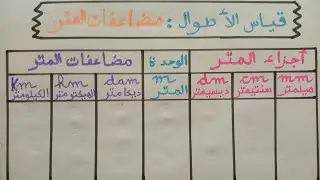 قياس الأطوال: مضاعفات المتر
أجزاء المتر الوحدة مضاعفات المتر
mm cm dm m dam hm Km
ميلمتر سنتيمتر ديسيمتر المتر ديكامتر الهيكتومتر الكيلومتر